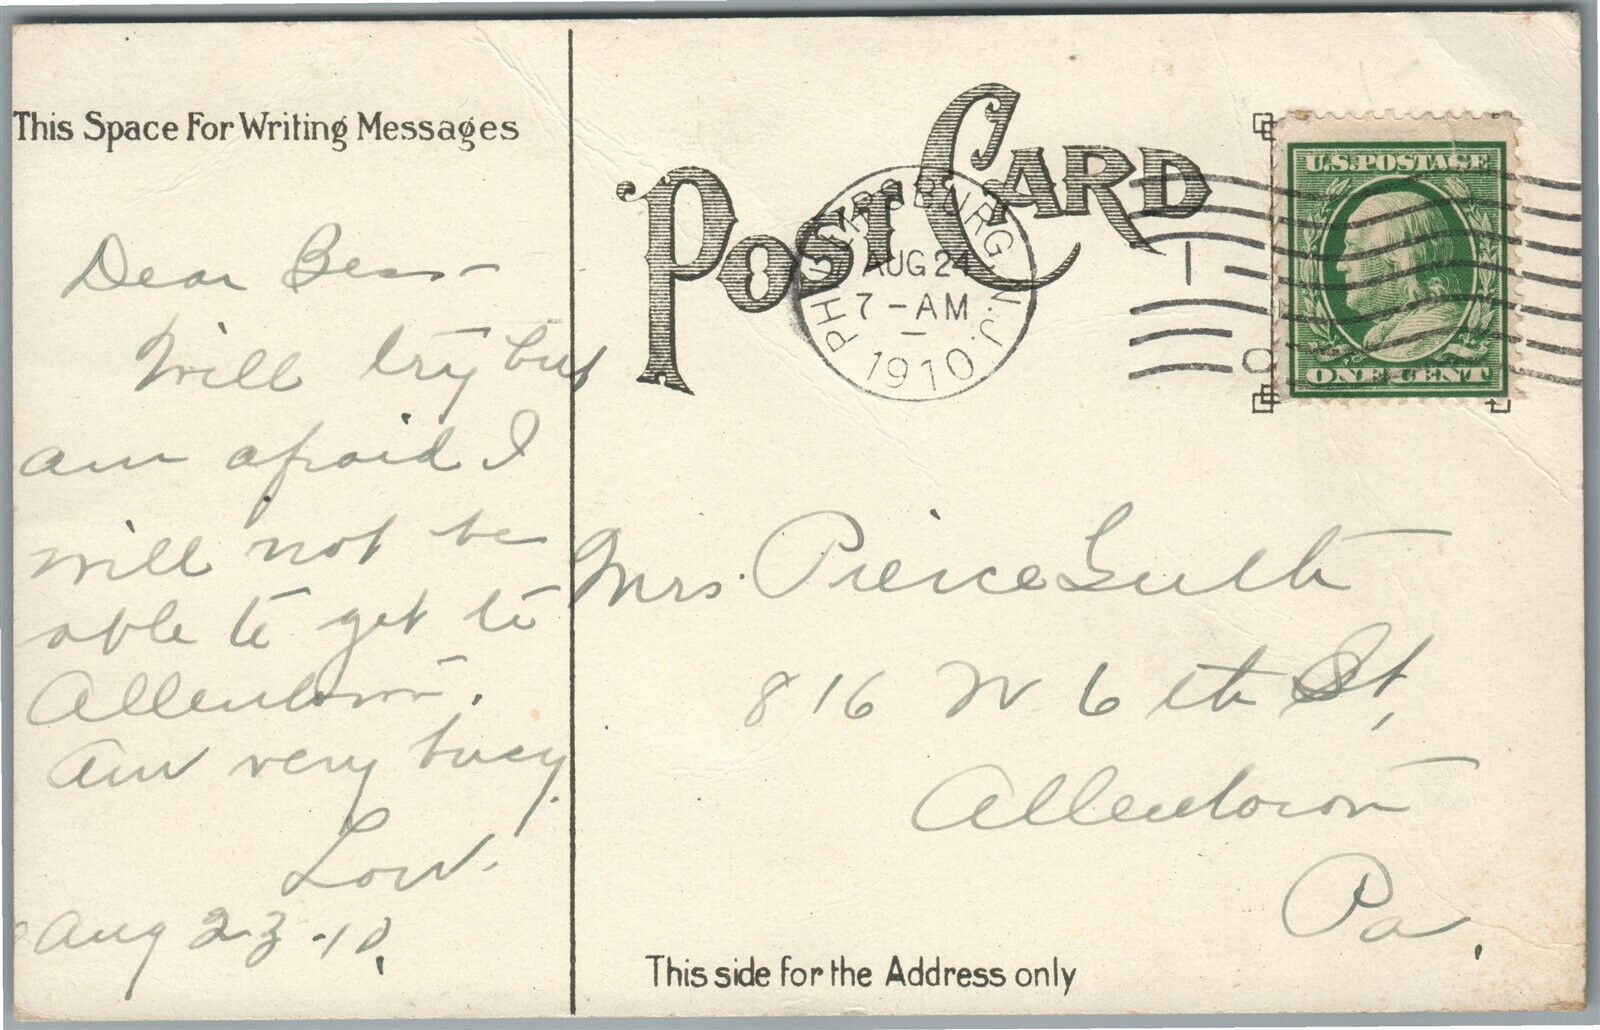 This Space For Writing Messages
Dear Bess-
Will try but
am afraid I
will not be
able to get to
Allentown.
Am very busy.
Lou.
Aug 23-10.
POST CARD
PHILLIPSBURG, N.J.
AUG 24
7-AM
1910
1
U.S. POSTAGE
ONE CENT
Mrs. Pierce Guth
816 N 6th St,
Allentown
Pa.
This side for the Address only